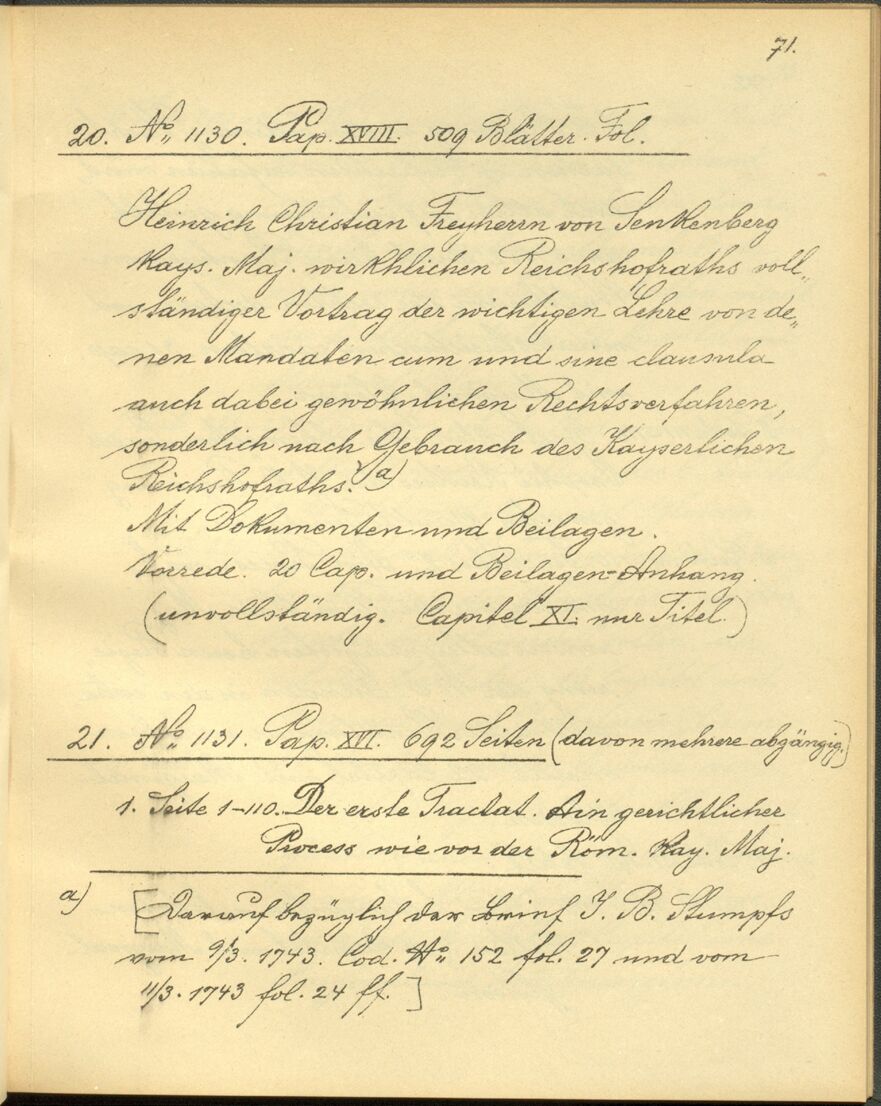 71.
20. No„ 1130. Pap. XVIII. 509 Blätter. Fol.
Heinrich Christian Freyherrn von Senkenberg
Kays. Maj. wirkhlichen Reichshofraths voll„
ständiger Vortrag der wichtigen Lehre von de„
nen Mandaten cum und sine clausula
auch dabei gewöhnlichen Rechtsverfahren,
sonderlich nach Gebrauch des Kayserlichen
Reichshofraths. a)
Mit Dokumenten und Beilagen.
Vorrede. 20 Cap. und Beilagen=Anhang.
(unvollständig. Capitel XI. nur Titel.)
21. No„ 1131. Pap. XVI. 692 Seiten (davon mehrere abgängig.)
1. Seite 1–110. Der erste Tractat. Ain gerichtlicher
Process wie vor der Röm. Kay. Maj.
a) [Darauf bezüglich der Brief J. B. Stumpfs
vom 9/3. 1743. Cod. No„ 152 fol. 27 und vom
11/3. 1743 fol. 24 ff.]